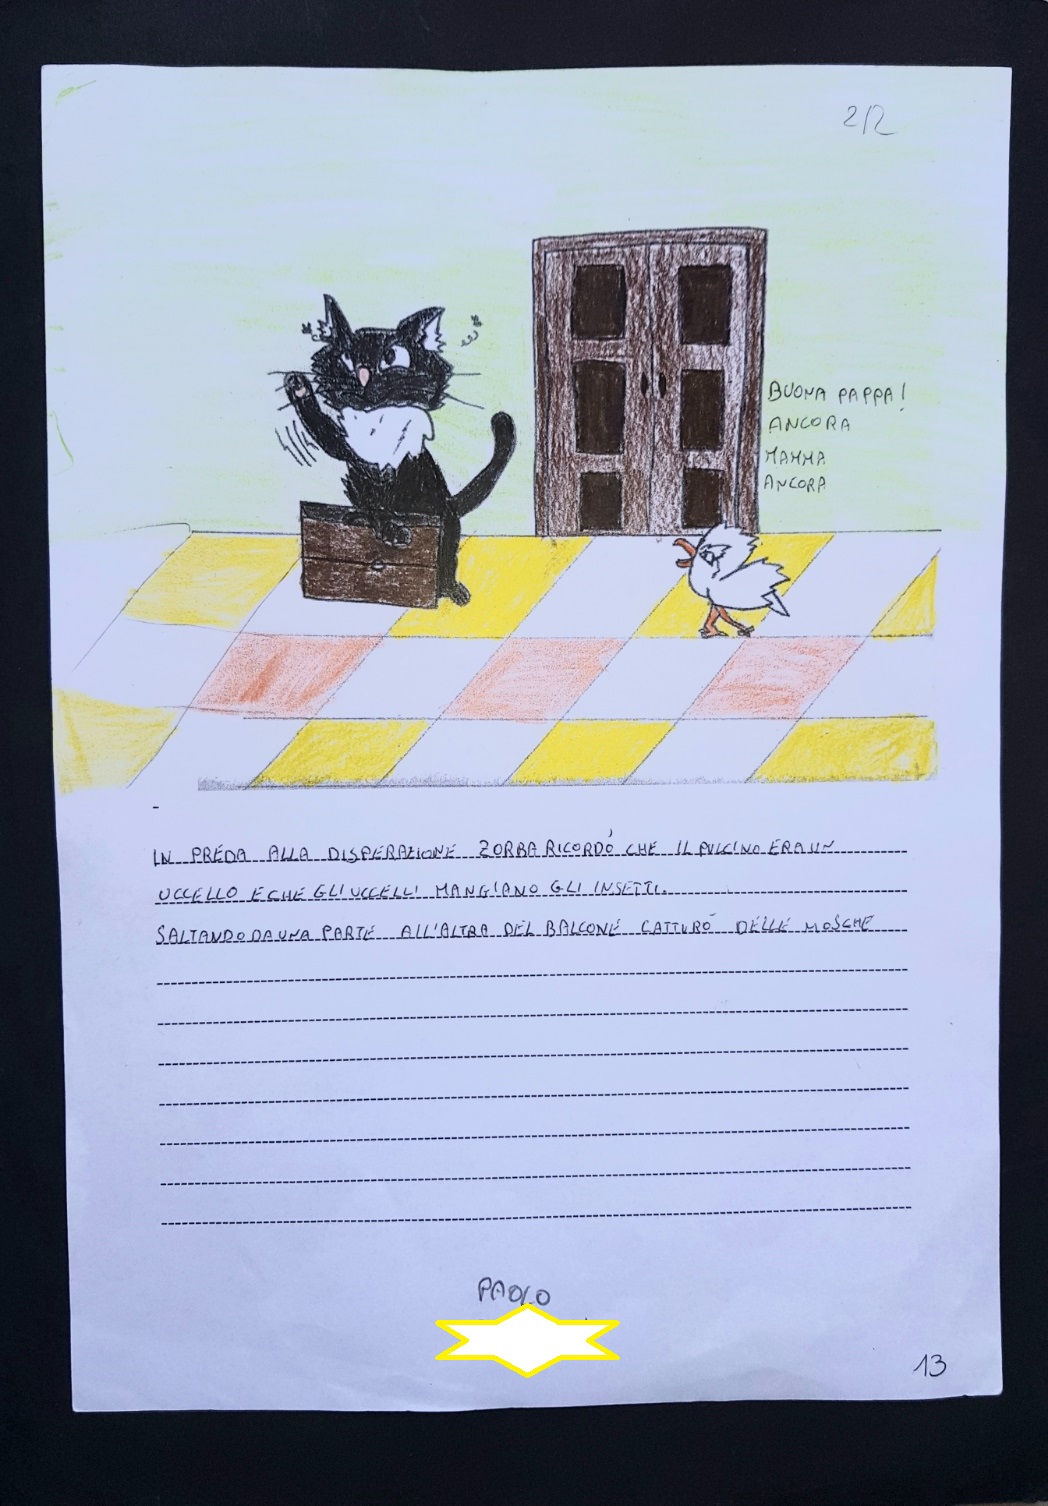 2/2
BUONA PAPPA!
ANCORA
MAMMA
ANCORA
IN PREDA ALLA DISPERAZIONE ZORBA RICORDÒ CHE IL PULCINO ERA UN
UCCELLO E CHE GLI UCCELLI MANGIANO GLI INSETTI.
SALTANDO DA UNA PARTE ALL'ALTRA DEL BALCONE CATTURÒ DELLE MOSCHE
PAOLO
13